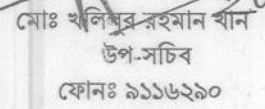 মোঃ খলিলুর রহমান খান
উপ-সচিব
ফোনঃ ৯১১৬২৯০